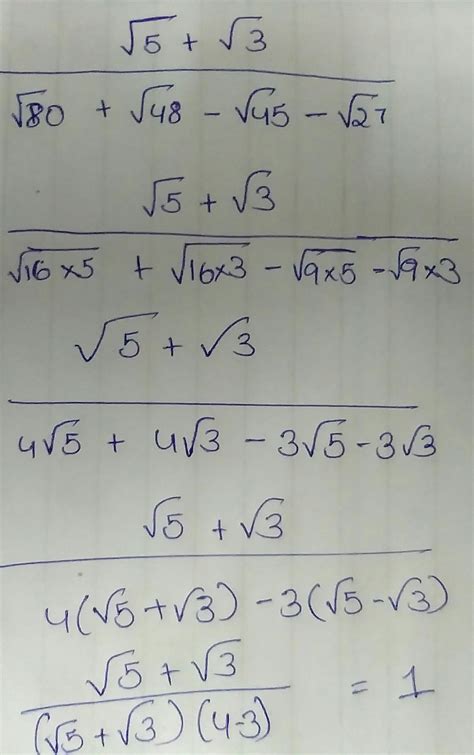 √5 + √3
√80 + √48 - √45 - √27
√5 + √3
√16×5 + √16×3 - √9×5 - √9×3
√5 + √3
4√5 + 4√3 - 3√5 - 3√3
√5 + √3
4(√5 + √3) - 3(√5 - √3)
√5 + √3
(√5 + √3) (4-3) = 1